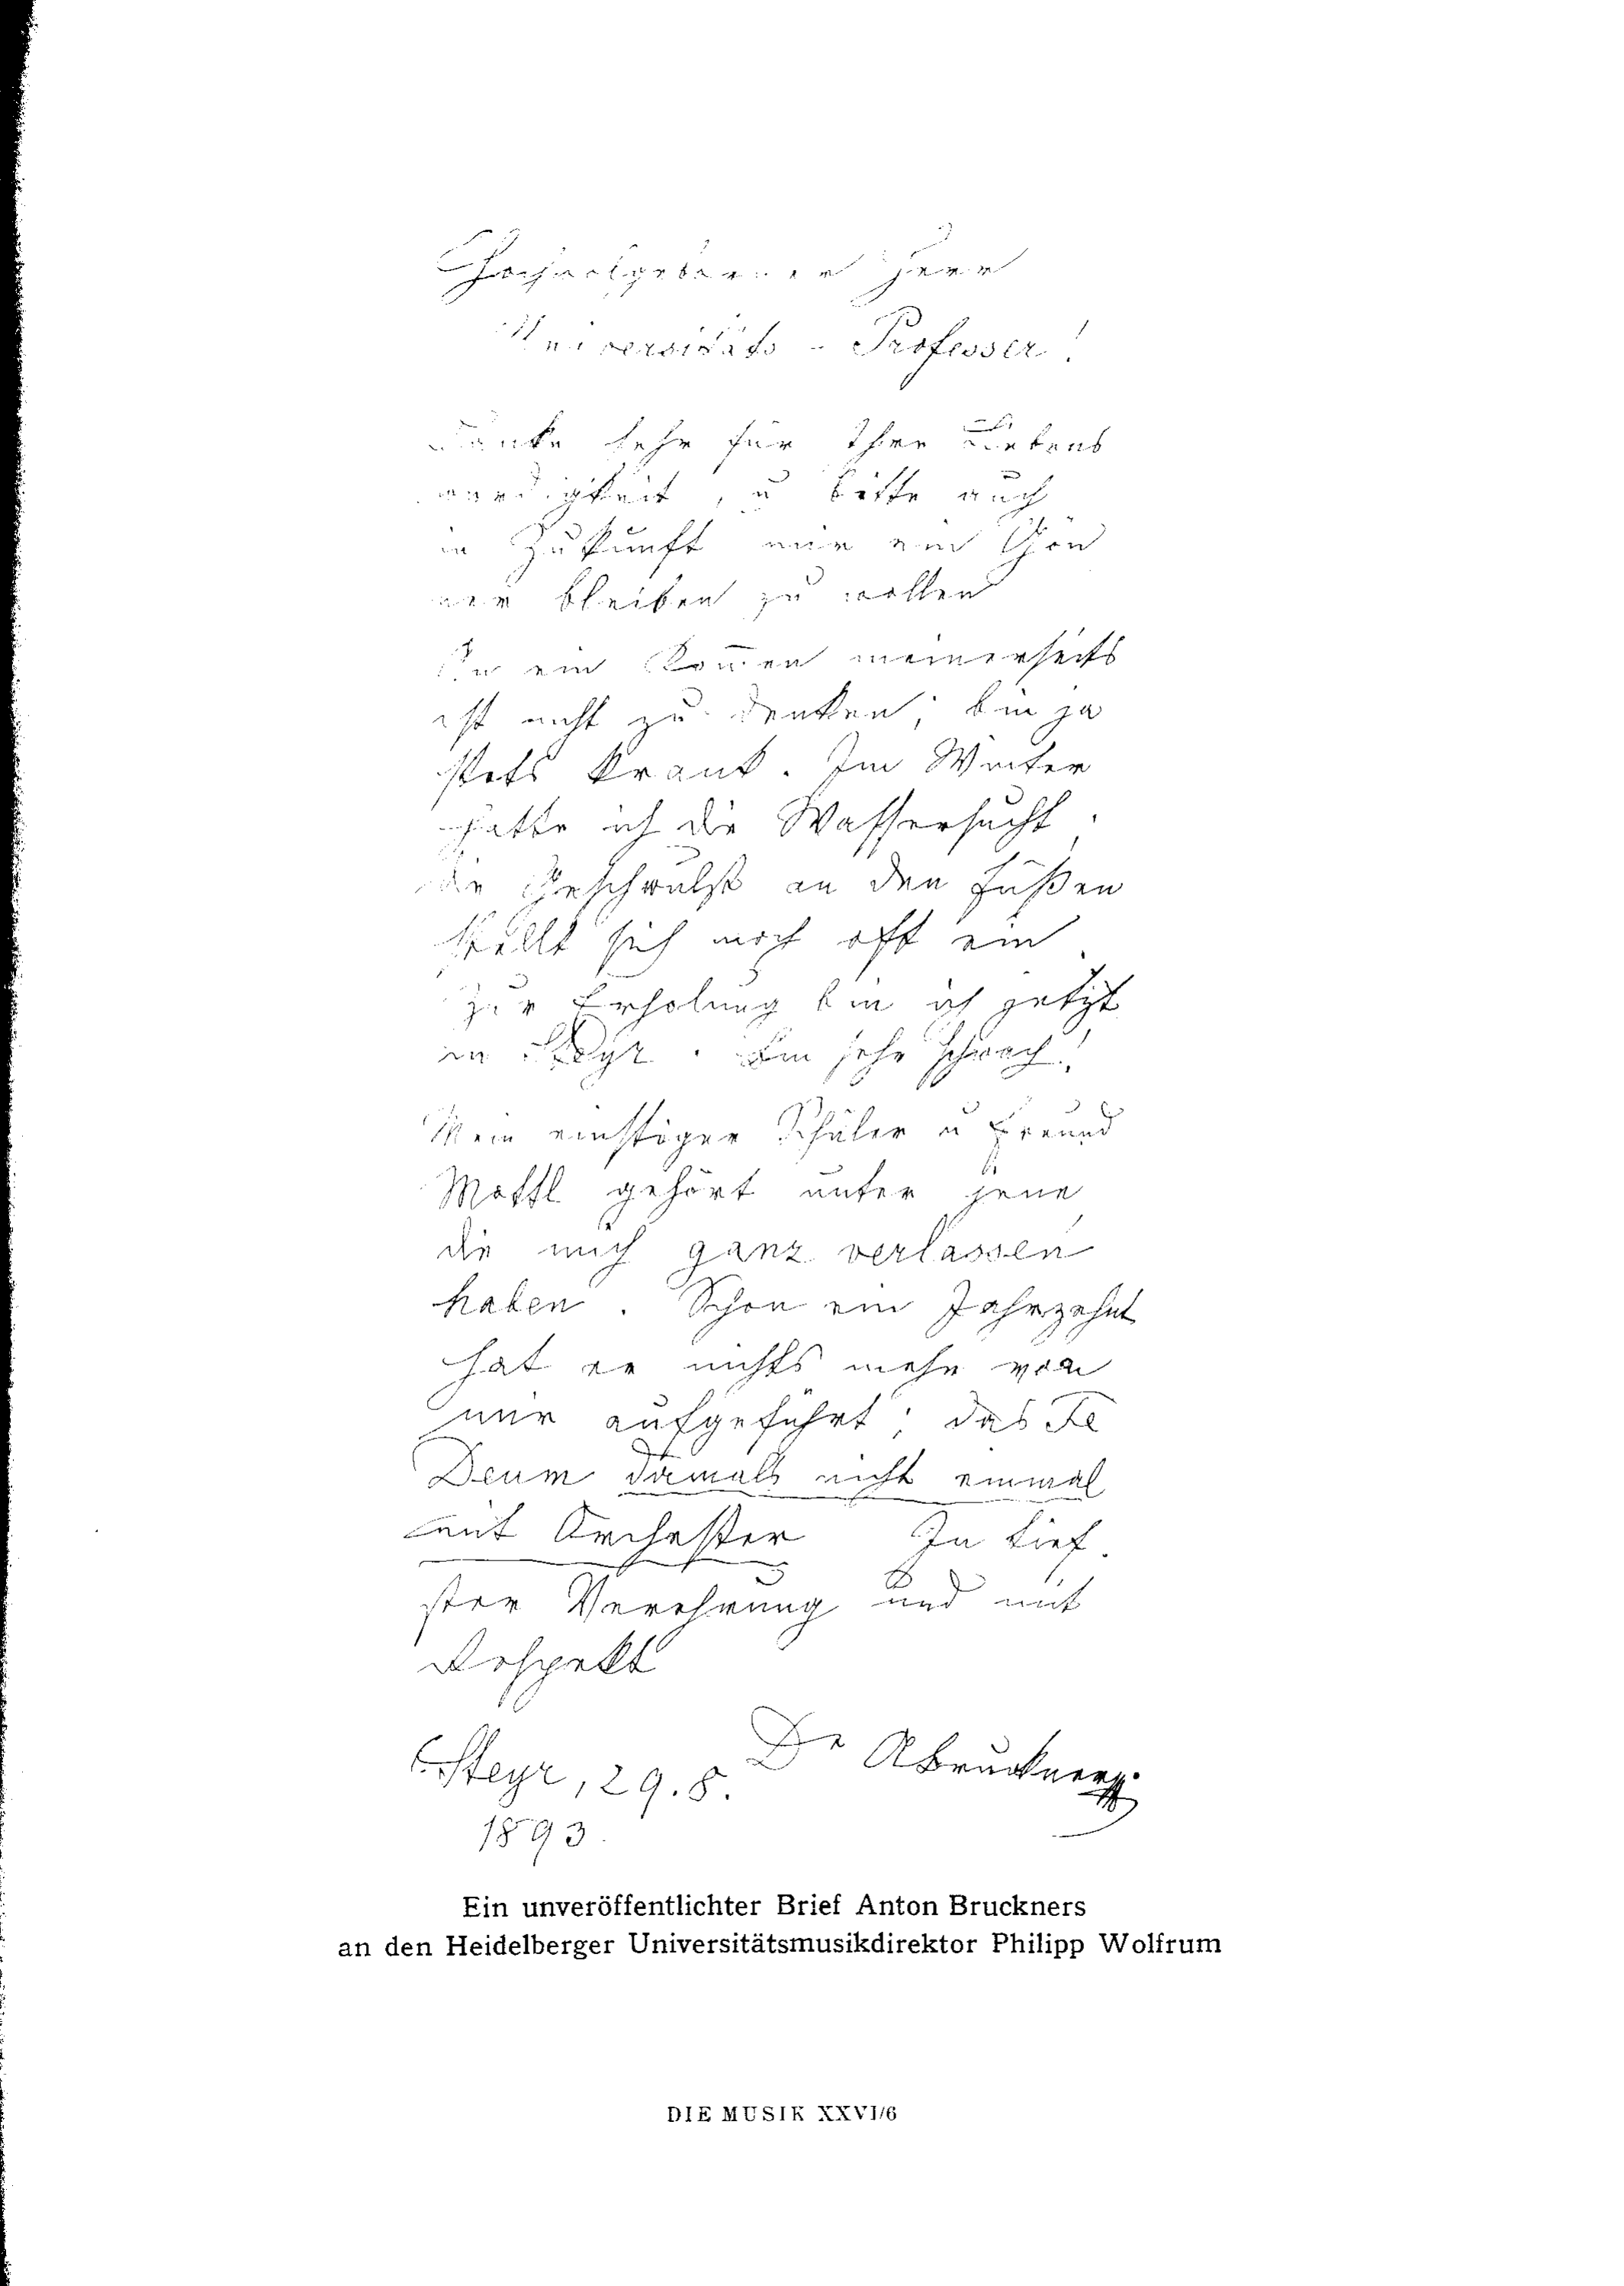 Hochwolgeborner Herr
Universitäts-Professor!
Danke sehr für Ihre Liebens
würdigkeit, u bitte auch
in Zukunft mir ein Gön
ner bleiben zu wollen
An ein Kom̄en meinerseits
ist nicht zu denken; bin ja
stets krank. Im Winter
hatte ich die Wassersucht.
die Geschwulst an den Füßen
stellt sich noch oft ein
Zur Erholung bin ich jetzt
in Steyr. Bin sehr schwach!
Mein einstiger Schüler u Freund
Mottl gehört unter jene
die mich ganz verlassen
haben. Schon ein Jahrzehnt
hat er nichts mehr von
mir aufgeführt; das Te
Deum damals nicht einmal
mit Orchester In tief
ster Verehrung und mit
Respekt
Dr ABruckner
Steyr, 29.8.
1893.
Ein unveröffentlichter Brief Anton Bruckners
an den Heidelberger Universitätsmusikdirektor Philipp Wolfrum
DIE MUSIK XXVI/6